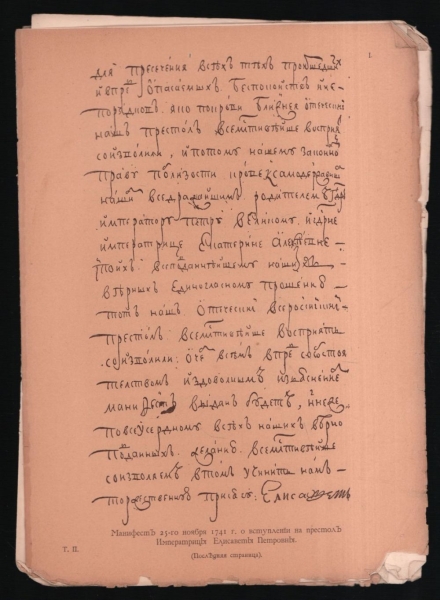 для пресеченія всѣхъ тѣхъ происшедших
и впредь опасаемыхъ безпокойствъ и не
порядковъ. яко по крови ближняя отеческий
нашъ престолъ всемилостивѣйше восприять
соизволили, и по тому нашему законному
праву по близости крови к самодержавнымъ
нашимъ вседражайшимъ родителемъ
императору петру великому, и
императрице екатерине алексѣевне
ихъ. всеподданнѣйшему нашихъ
вѣрныхъ единогласному прошению
тотъ нашъ. отеческий всеросийский
престолъ. всемилостивѣйше восприять
соизволили: о чемъ всѣмъ впредь со обстоя
телствомъ и з доволнымъ изъяснениемъ
манифестъ выданъ будетъ, и ныне
по всеусердному всѣхъ нашихъ вѣрно
подданныхъ. желанию. всемилостивѣйше
соизволяемъ в томъ учинить намъ
торжественную присягу: Елисаветъ
Манифестъ 25-го ноября 1741 г. о вступленіи на престолъ
Императрицы Елисаветы Петровны.
Т. II.
(Послѣдняя страница).